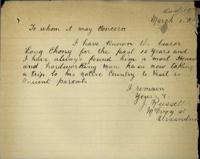 March
To whom it may Concern
I have known the bearer
Long Chong for the past 15 years and
I have always found him a most Honest
and hardworking man he is now taking
a trip to his native Country to visit his
parents
I remain
Yours
J. Russell
Alexandria